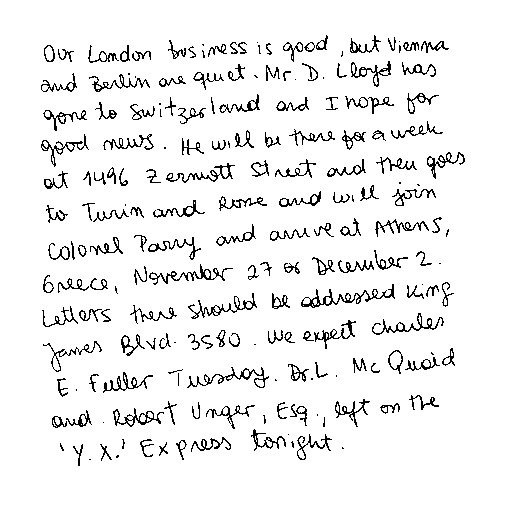 Our London business is good, but Vienna
and Berlin are quiet. Mr. D. Lloyd has
gone to Switzerland and I hope for
good news. He will be there for a week
at 1496 Zermott Street and then goes
to Turin and Rome and will join
Colonel Parry and arrive at Athens,
Greece, November 27 or December 2.
Letters there should be addressed King
James Blvd. 3580. We expect Charles
E. Fuller Tuesday. Dr. L. Mc Quaid
and Robert Unger, Esq., left on the
'Y. X.' Express tonight.